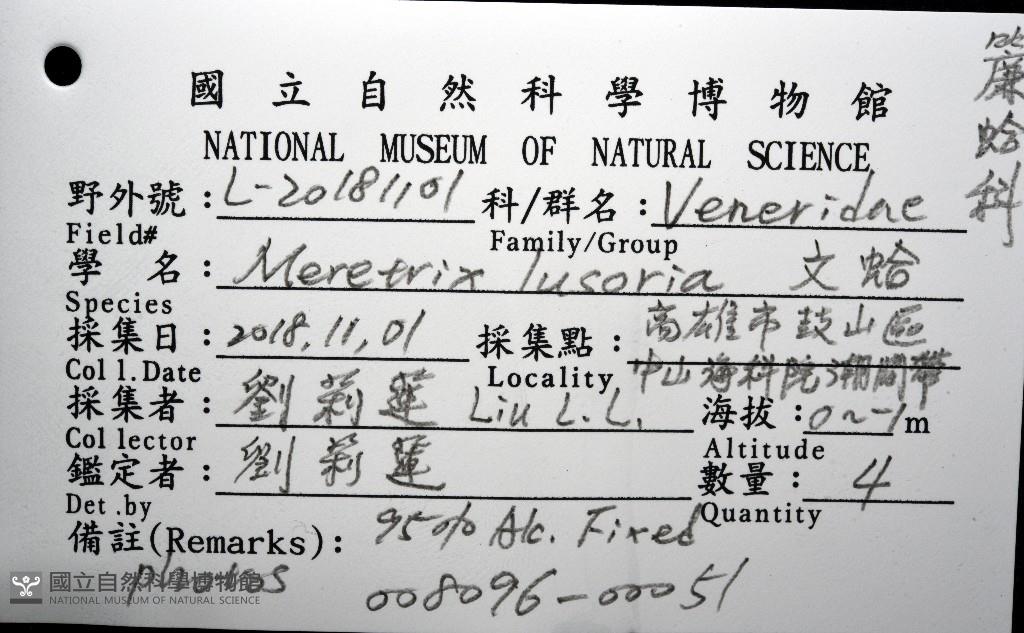 國立自然科學博物館
NATIONAL MUSEUM OF NATURAL SCIENCE
野外號: L-20181101 科/群名: Veneridae
Field# Family/Group
簾蛤科
學 名: Meretrix lusoria 文蛤
Species
採集日: 2018.11.01 採集點: 高雄市鼓山區
Coll.Date Locality 中山海科院潮間帶
採集者: 劉莉蓮 Liu L.L. 海拔: 0~-1m
Collector Altitude
鑑定者: 劉莉蓮 數量: 4
Det.by Quantity
備註(Remarks): 95% Alc. Fixed
photos 008096-00051
國立自然科學博物館
NATIONAL MUSEUM OF NATURAL SCIENCE